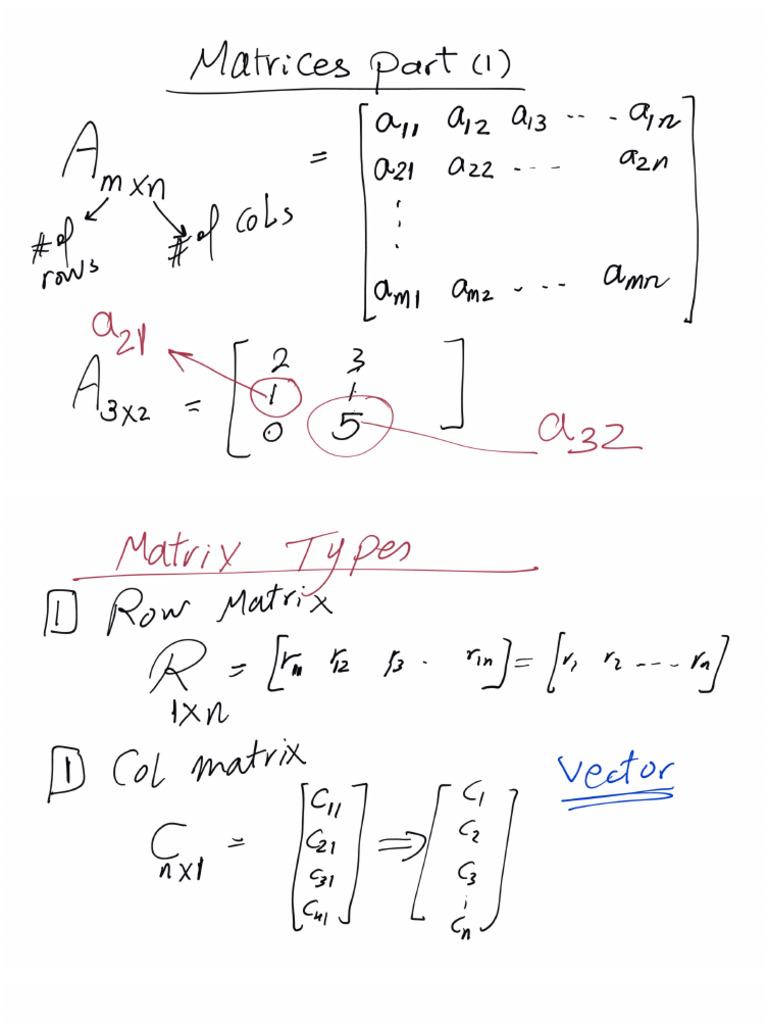 Matrices part (1)
A m×n = [ a11 a12 a13 ... a1n
a21 a22 ... a2n
⋮
am1 am2 ... amn ]
# of rows
# of cols
a21
A 3×2 = [ 2 3
1 1
0 5 ]
a32
Matrix Types
1 Row Matrix
R 1×n = [r11 r12 r3 . r1n] = [r1 r2 ... rn]
1 Col matrix
vector
C n×1 = [ C11
C21
C31
C41 ] ⇒ [ C1
C2
C3
⋮
Cn ]